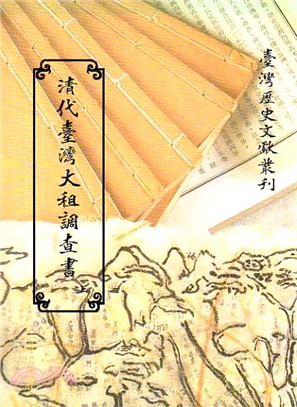 臺灣歷史文獻叢刊
清代臺灣大租調查書 上